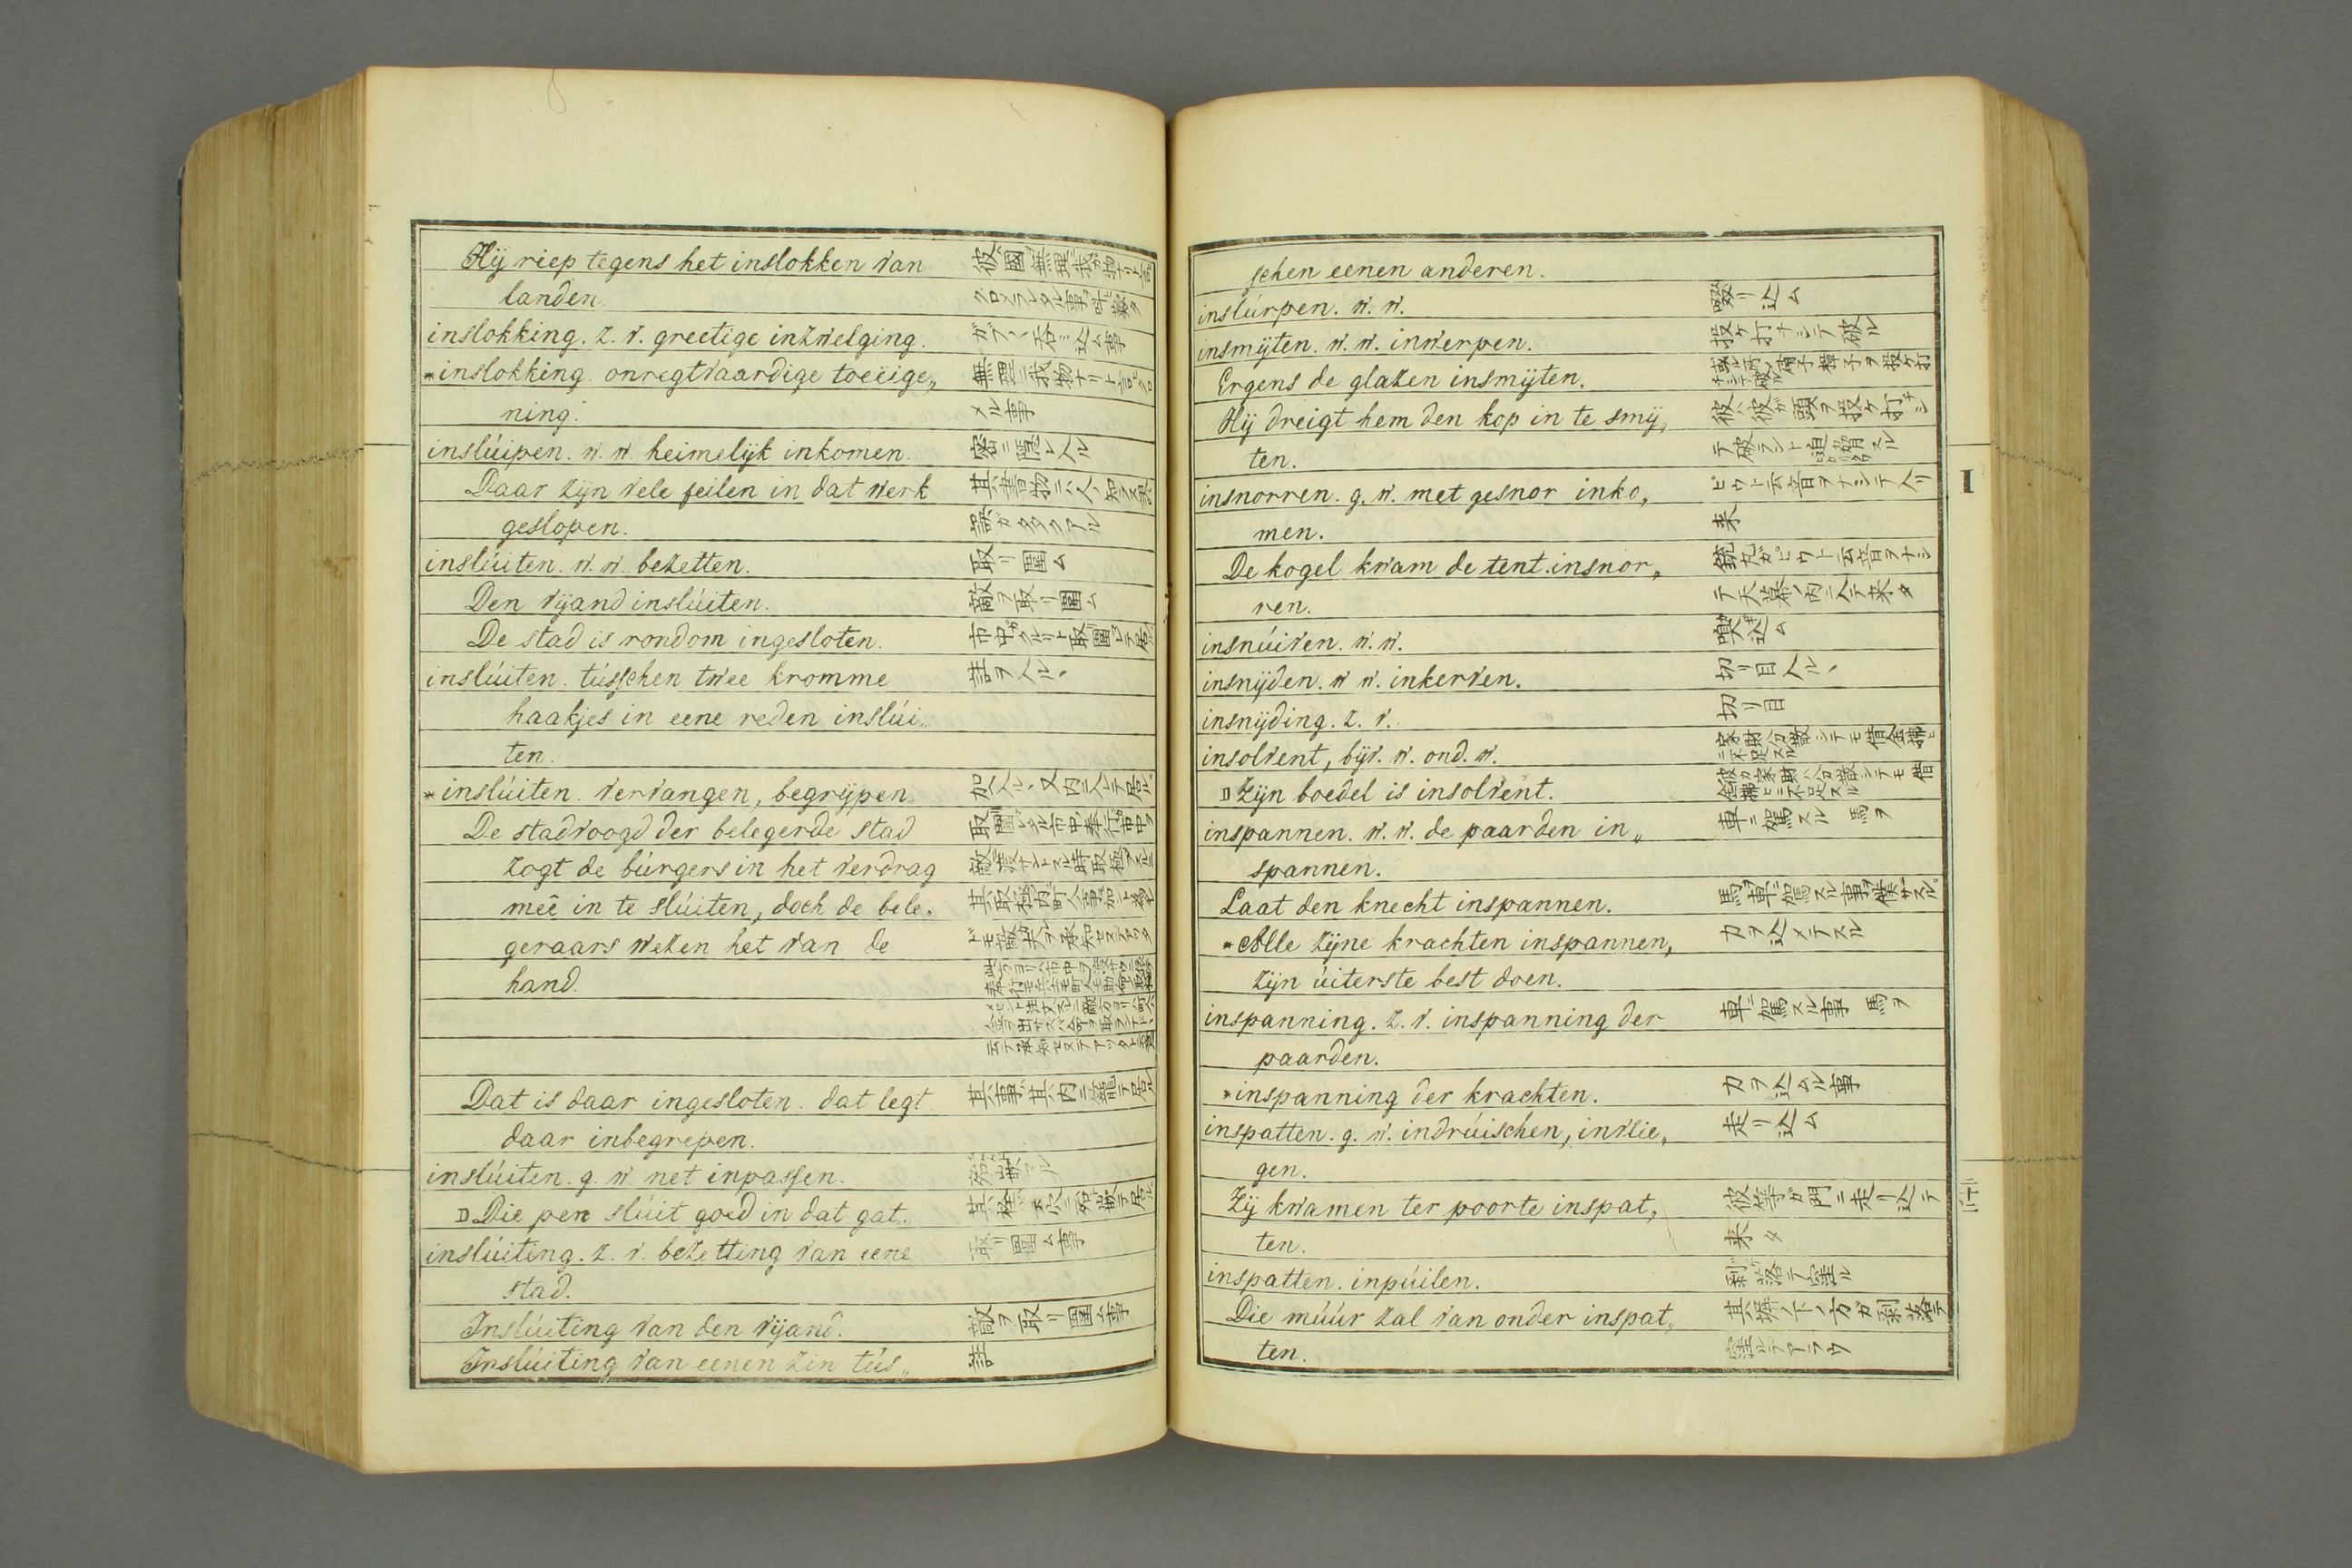 Hij riep tegens het inslokken van 彼國ヲ無理ニ我ガ物ナリト言
landen.
inslokking. z. v. greetige inzwelging. ガブ〱呑ミ込ム事
*inslokking. onregtvaardige toeëige„ 無理ニ我物ナリト言クロ
ning. メル事
inslúipen. w. w. heimelijk inkomen. 密ニ隠レ入ル
Daar zijn vele feilen in dat werk
geslopen. 誤ガ多クアル
inslúiten. w. w. bezetten. 取リ圍ム
Den vijand inslúiten. 敵ヲ取リ圍ム
De stad is rondom ingesloten. 市中ガクルリト取圍レテ居ル
inslúiten. tússchen twee kromme 註ヲ入ル丶
haakjes in eene reden inslúi„
ten.
*inslúiten. vervangen, begrijpen. 加ヘ入ル丶又内ニ入レテ居ル
De stadvoogd der belegerde stad
zogt de búrgers in het verdrag
meê in te slúiten, doch de bele„
geraars wezen het van de
hand.
Dat is daar ingesloten. dat legt 其事ハ其内ニ籠テ居ル
daar inbegrepen.
inslúiten. g. w. net inpassen.
Die pen slúit goed in dat gat.
inslúiting. z. v. bezetting van eene 取リ圍ム事
stad.
Inslúiting van den vijand. 敵ヲ取リ圍ム事
Inslúiting van eenen zin tús„ 註
schen eenen anderen.
inslúrpen. w. w. 啜リ込ム
insmijten. w. w. inwerpen. 投ケ打ナシテ破ル
Ergens de glazen insmijten. 或ル所ノ硝子障子ヲ投ケ打ナシテ破ル
Hij dreigt hem den kop in te smij„ 彼ハ彼ガ頭ヲ投ケ打ナシ
ten. テ破ラント追脅スル
insnorren. g. w. met gesnor inko„ ピウト云音ヲナシテ入リ
men. 来
De kogel kwam de tent insnor„ 銃丸ガピウト云音ヲナシ
ren. テ天幕ノ内ニ入テ来タ
insnúiven. w. w.
insnijden. w. w. inkerven. 切リ目入ル丶
insnijding. z. v. 切リ目
insolvent, bijv. w. ond. w. 家財分散シテモ借金拂ヒニ不足スル
Zijn boedel is insolvent. 彼カ家財ハ分散シテモ借金拂ヒニ不足スル
inspannen. w. w. de paarden in„ 車ニ駕スル 馬ヲ
spannen.
Laat den knecht inspannen. 馬ヲ車ニ駕スル事ヲ僕ニサスル
*Alle zijne krachten inspannen, 力ヲ込メテスル
zijn úiterste best doen.
inspanning. z. v. inspanning der 車ニ駕スル事 馬ヲ
paarden.
*inspanning der krachten. 力ヲ込ムル事
inspatten. g. w. indrúischen, invlie„ 走リ込ム
gen.
Zij kwamen ter poorte inspat„ 彼等ガ門ニ走リ込テ
ten. 来タ
inspatten. inpúilen. 剥落テ窪ル
Die múúr zal van onder inspat„ 其塀ノ下ノ方ガ剥落テ
ten. 窪ルデアラウ
I